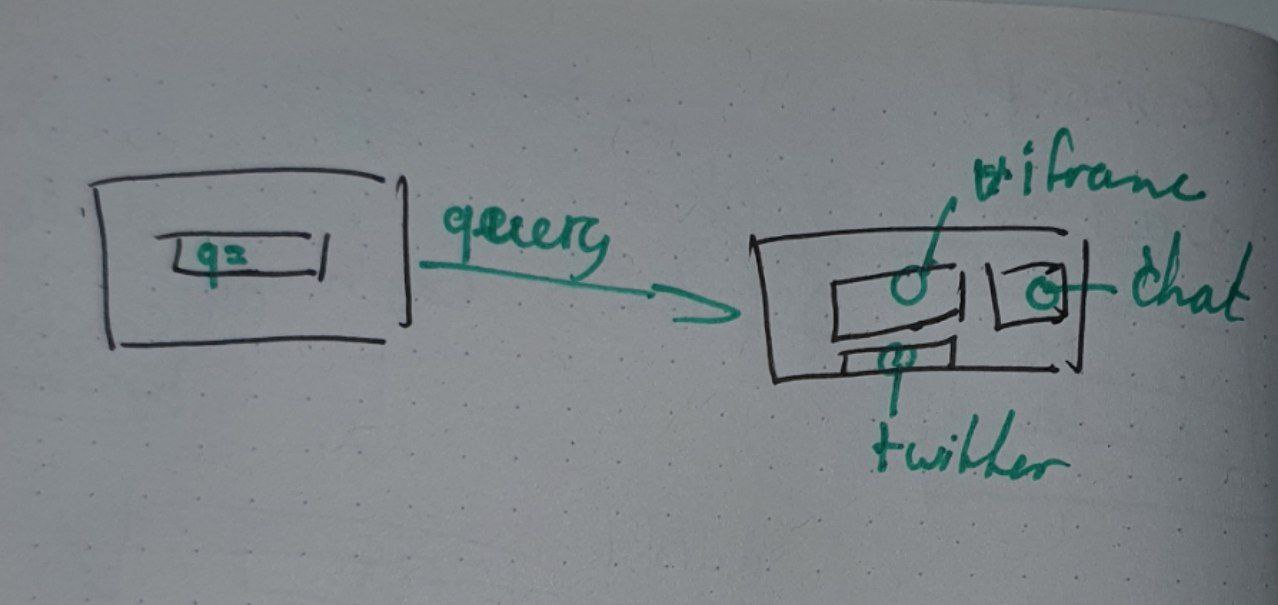 q=
query
iframe
chat
twitter